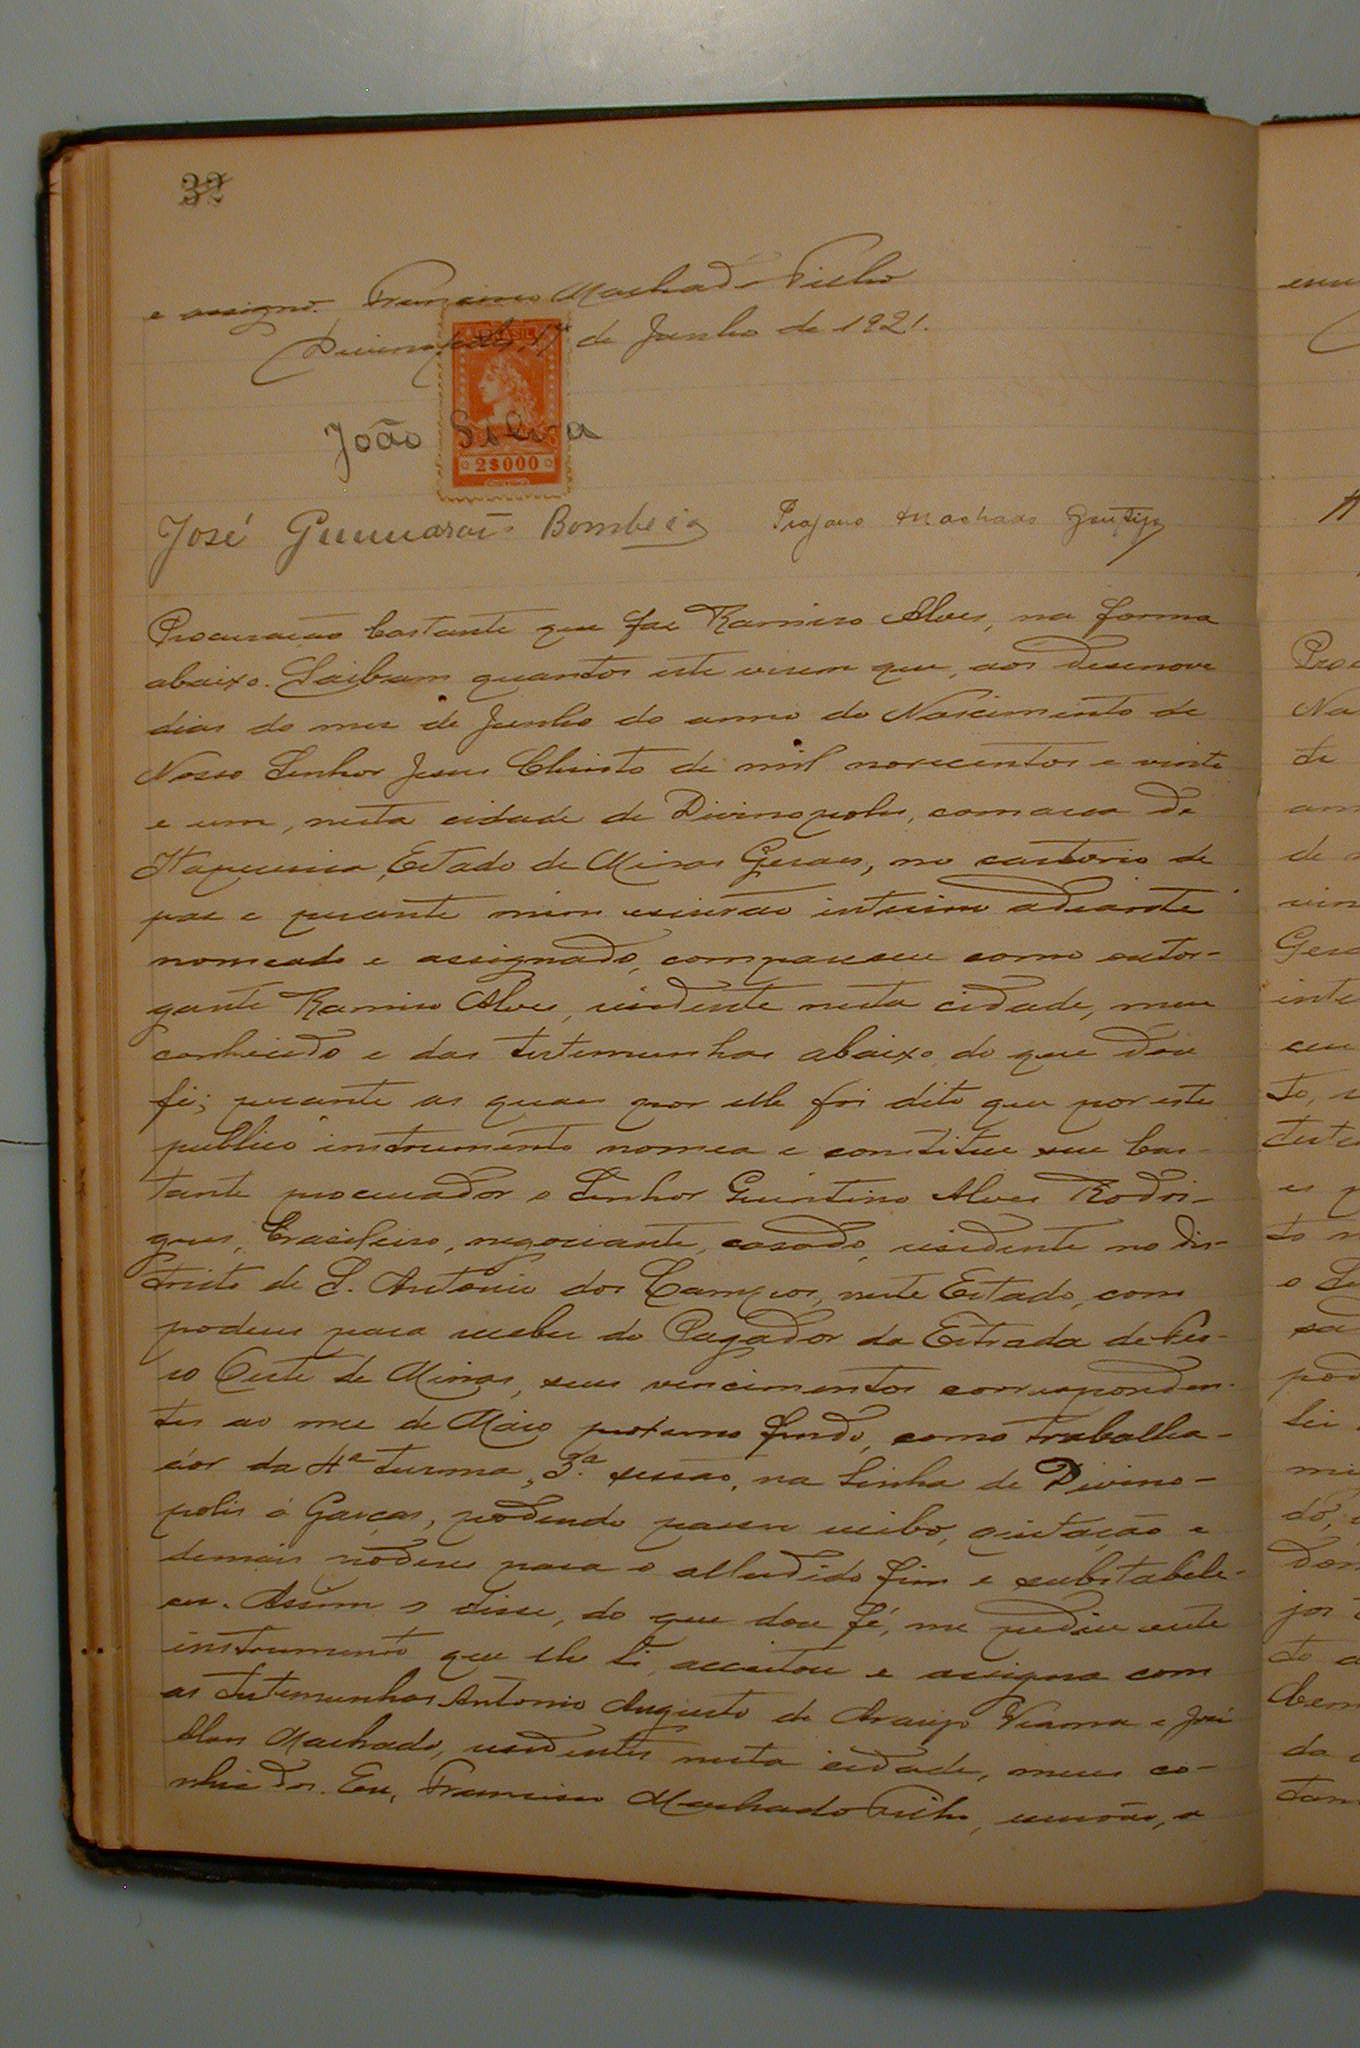 32
e assigno. Francisco Machado Filho
Divinopolis, 17 de Junho de 1921.
BRASIL
João Silva
2$000
José Guimarães Machado
Procuração bastante que faz Ramiro Alves, na forma
abaixo. Saibam quantos este virem que, aos desenove
dias do mez de Junho do anno do Nascimento de
Nosso Senhor Jesus Christo de mil novecentos e vinte
e um, nesta cidade de Divinopolis, comarca de
Itapecerica, Estado de Minas Geraes, no cartorio de
paz e perante mim escrivão interino adeante
nomeado e assignado, compareceu como outor-
gante Ramiro Alves, residente nesta cidade, meu
conhecido e das testemunhas abaixo, do que dou
fé; perante as quaes por elle foi dito que por este
publico instrumento nomea e constitue seu bas-
tante procurador o Senhor Quintino Alves Rodri-
gues, brasileiro, negociante, casado, residente no dis-
tricto de S. Antonio dos Campos, neste Estado, com
poderes para receber do Pagador da Estrada de Fer-
ro Oeste de Minas, seus vencimentos corresponden-
tes ao mez de Maio proximo findo, como trabalha-
dor da 4ª turma, 3ª. sessão, na linha de Divino-
polis á Garças, podendo passar recibo, quitação e
demais poderes para o alludido fim e substabele-
cer. Assim o disse, do que dou fé, me pediu este
instrumento que lhe li, acceitou e assigna com
as testemunhas Antonio Augusto de Araujo Vianna e José
Alves Machado, residentes nesta cidade, meus co-
nhecidos. Eu, Francisco Machado Filho, escrivão, o